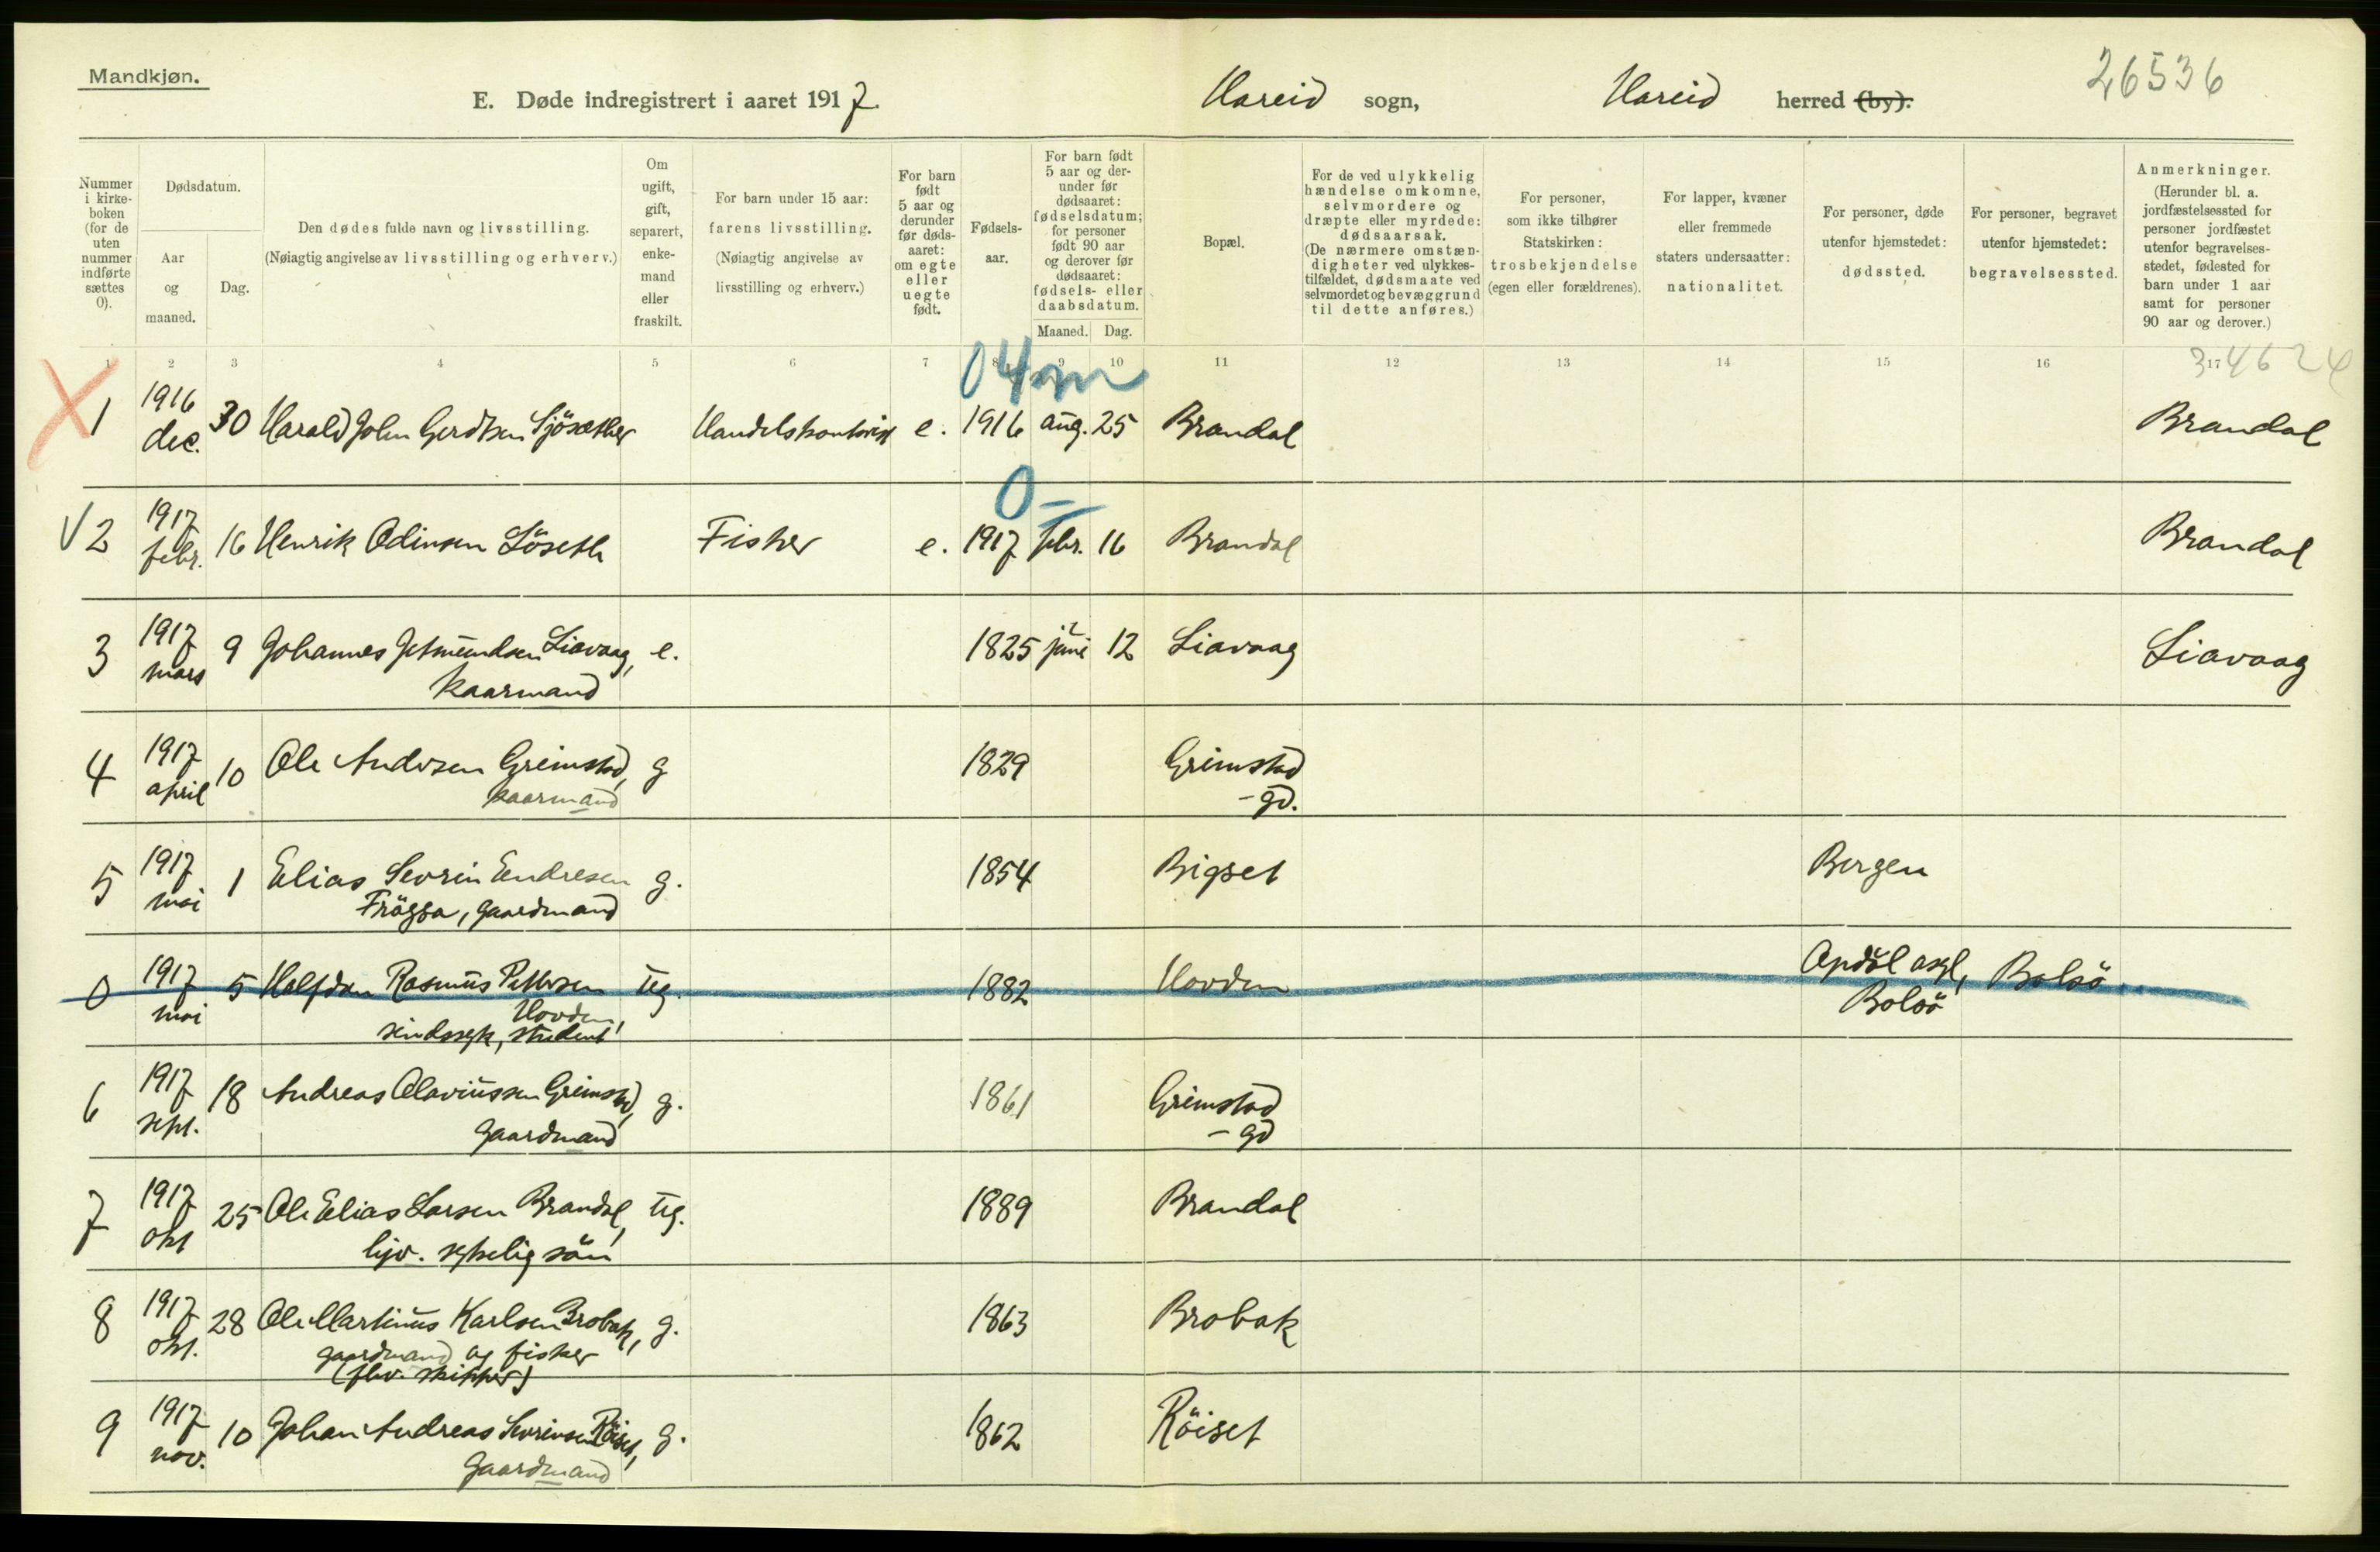 Mandkjøn.
26536
E. Døde indregistrert i aaret 1917.
Hareid sogn, Hareid herred (by).
Nummer
i kirke-
boken
(for de
uten
nummer
indførte
sættes
0).
Dødsdatum.
Aar
og
maaned.
Dag.
Den dødes fulde navn og livsstilling.
(Nøiagtig angivelse av livsstilling og erhverv.)
Om
ugift,
gift,
separert,
enke-
mand
eller
fraskilt.
For barn under 15 aar:
farens livsstilling.
(Nøiagtig angivelse av
livsstilling og erhverv.)
For barn
født
5 aar og
derunder
før døds-
aaret:
om egte
eller
uegte
født.
Fødsels-
aar.
For barn født
5 aar og der-
under før
dødsaaret:
fødselsdatum;
for personer
født 90 aar
og derover før
dødsaaret:
fødsels- eller
daabsdatum.
Maaned. Dag.
Bopæl.
For de ved ulykkelig
hændelse omkomne,
selvmordere og
dræpte eller myrdede:
dødsaarsak.
(De nærmere omstæn-
digheter ved ulykkes-
tilfældet, dødsmaate ved
selvmordet og bevæggrund
til dette anføres.)
For personer,
som ikke tilhører
Statskirken:
trosbekjendelse
(egen eller forældrenes).
For lapper, kvæner
eller fremmede
staters undersaatter:
nationalitet.
For personer, døde
utenfor hjemstedet:
dødssted.
For personer, begravet
utenfor hjemstedet:
begravelsessted.
Anmerkninger.
(Herunder bl. a.
jordfæstelsessted for
personer jordfæstet
utenfor begravelses-
stedet, fødested for
barn under 1 aar
samt for personer
90 aar og derover.)
1 2 3 4 5 6 7 8 9 10 11 12 13 14 15 16 17
34624
04m
X 1 1916 30 Harald John Gerdtsen Sjösæther Handelskontorist e. 1916 aug. 25 Brandal Brandal
dec.
0 –
V 2 1917 16 Henrik Odinsen Löseth Fisker e. 1917 febr. 16 Brandal Brandal
febr.
3 1917 9 Johannes Jetmundsen Liavaag, e. 1825 juni 12 Liavaag Liavaag
mars kaarmand
4 1917 10 Ole Andersen Grimstad, g 1829 Grimstad
april kaarmand – gd.
5 1917 1 Elias Sevrin Endresen g. 1854 Bigset Bergen
mai gaardmand
0 1917 5 Halfdan Rasmus Pettersen ug. 1882 Hovden Opdöl asyl, Bolsö
mai Hovden, Bolsö
sindssyk, student
6 1917 18 Andreas Olaviussen Grimstad, g. 1861 Grimstad
sept. gaardmand – gd
7 1917 25 Ole Elias Larsen Brandal, ug. 1889 Brandal
okt hjv. sykelig sön
8 1917 28 Ole Martinus Karlsen Brobak, g. 1863 Brobak
okt. gaardmand og fisker
(fhv. skipper)
9 1917 10 Johan Andreas Sevrinsen Röiset, g. 1862 Röiset
nov. gaardmand